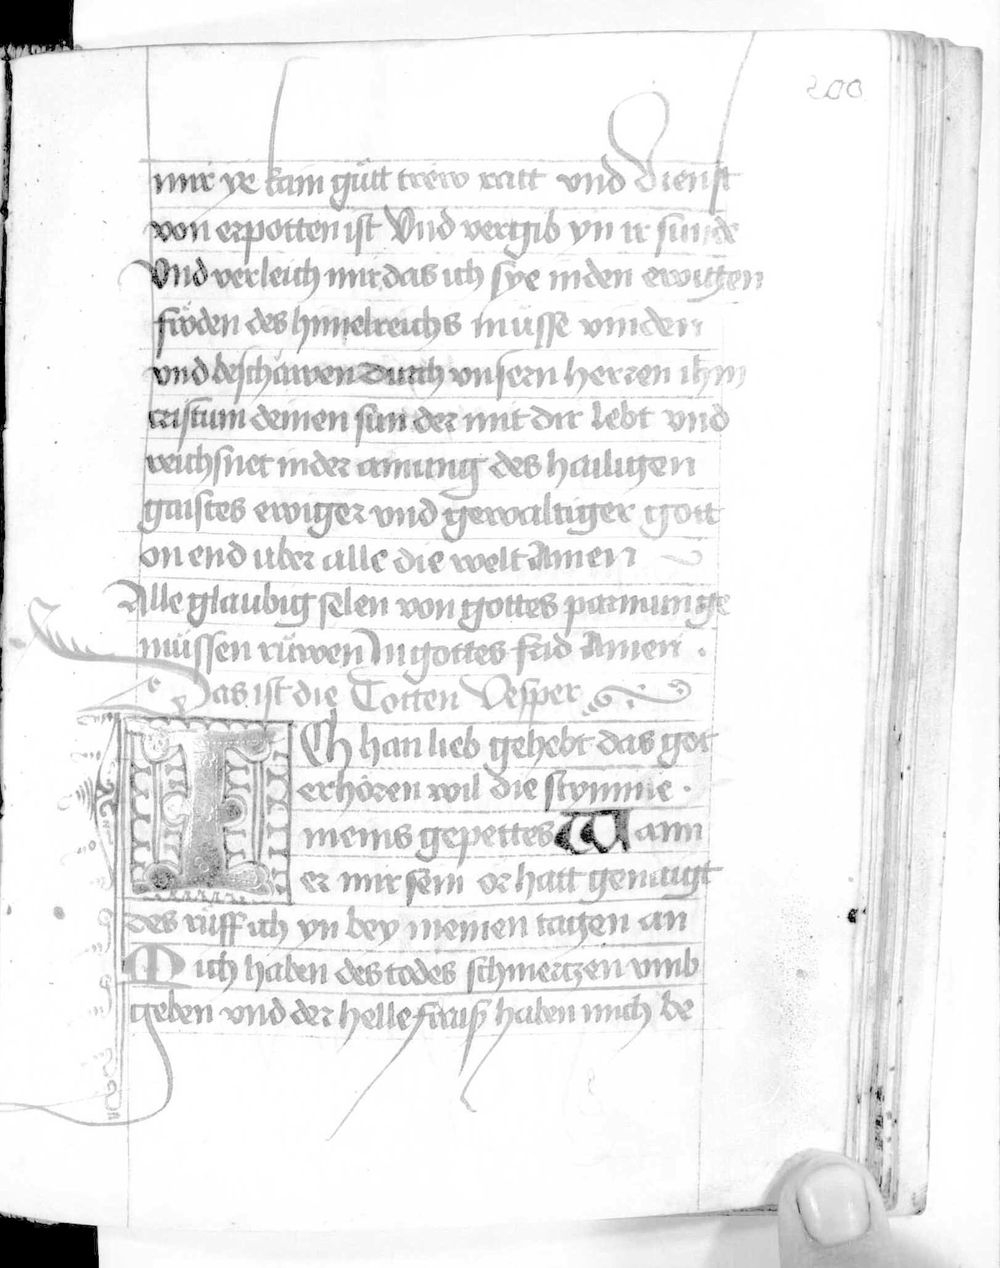 200
mir ye kain gütt trew ratt vnd dienst
von erpotten ist Vnd vergib yn ir sunde
Vnd verleich mir das ich sye in den ewigen
fröden des himelreichs müsse vinden
vnd beschawen durch vnsern herren ihm
cristum deinen sun der mit dir lebt vnd
reichsnet in der ainung des hailigen
gaistes ewiger vnd gewaltiger gott
on end uber alle die welt Amen
Alle glaubig selen von gottes parmunge
müssen rüwen In gottes frid Amen .
Das ist die Totten Vesper
ICh han lieb gehebt das got
erhören wil die stymme .
meins gepettes Wann
er mir sein or hatt genaigt
des rüff ich yn bey meinen tagen an
Mich haben des todes schmertzen vmb
geben vnd der helle fraiß haben mich be